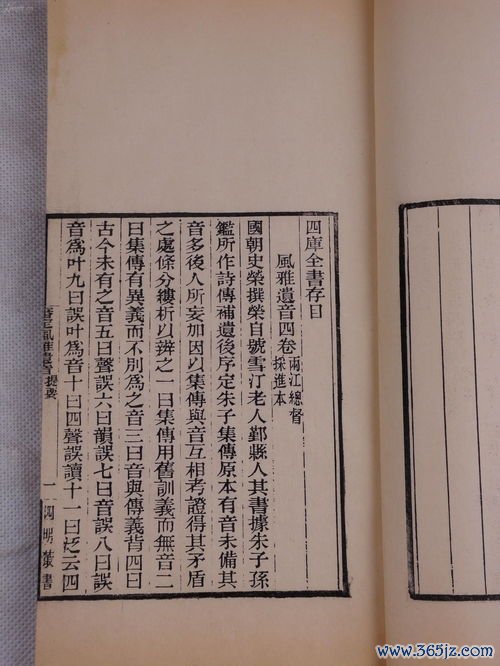 四庫全書存目
風雅遺音四卷 兩江總督採進本
國朝史榮撰榮自號雪汀老人鄞縣人其書據朱子孫
鑑所作詩傳補遺後序定朱子集傳原本有音未備其
音多後人所妄加因以集傳與音互相考證得其矛盾
之處條分縷析以辨之一曰集傳用舊訓義而無音二
曰集傳有異義而不別爲之音三曰音與傳義背四曰
古今未有之音五曰聲誤六曰韻誤七曰音誤八曰誤
音爲叶九曰誤叶爲音十曰四聲誤讀十一曰泛云四
風雅遺音 提要
一
四明叢書
www.365jz.com